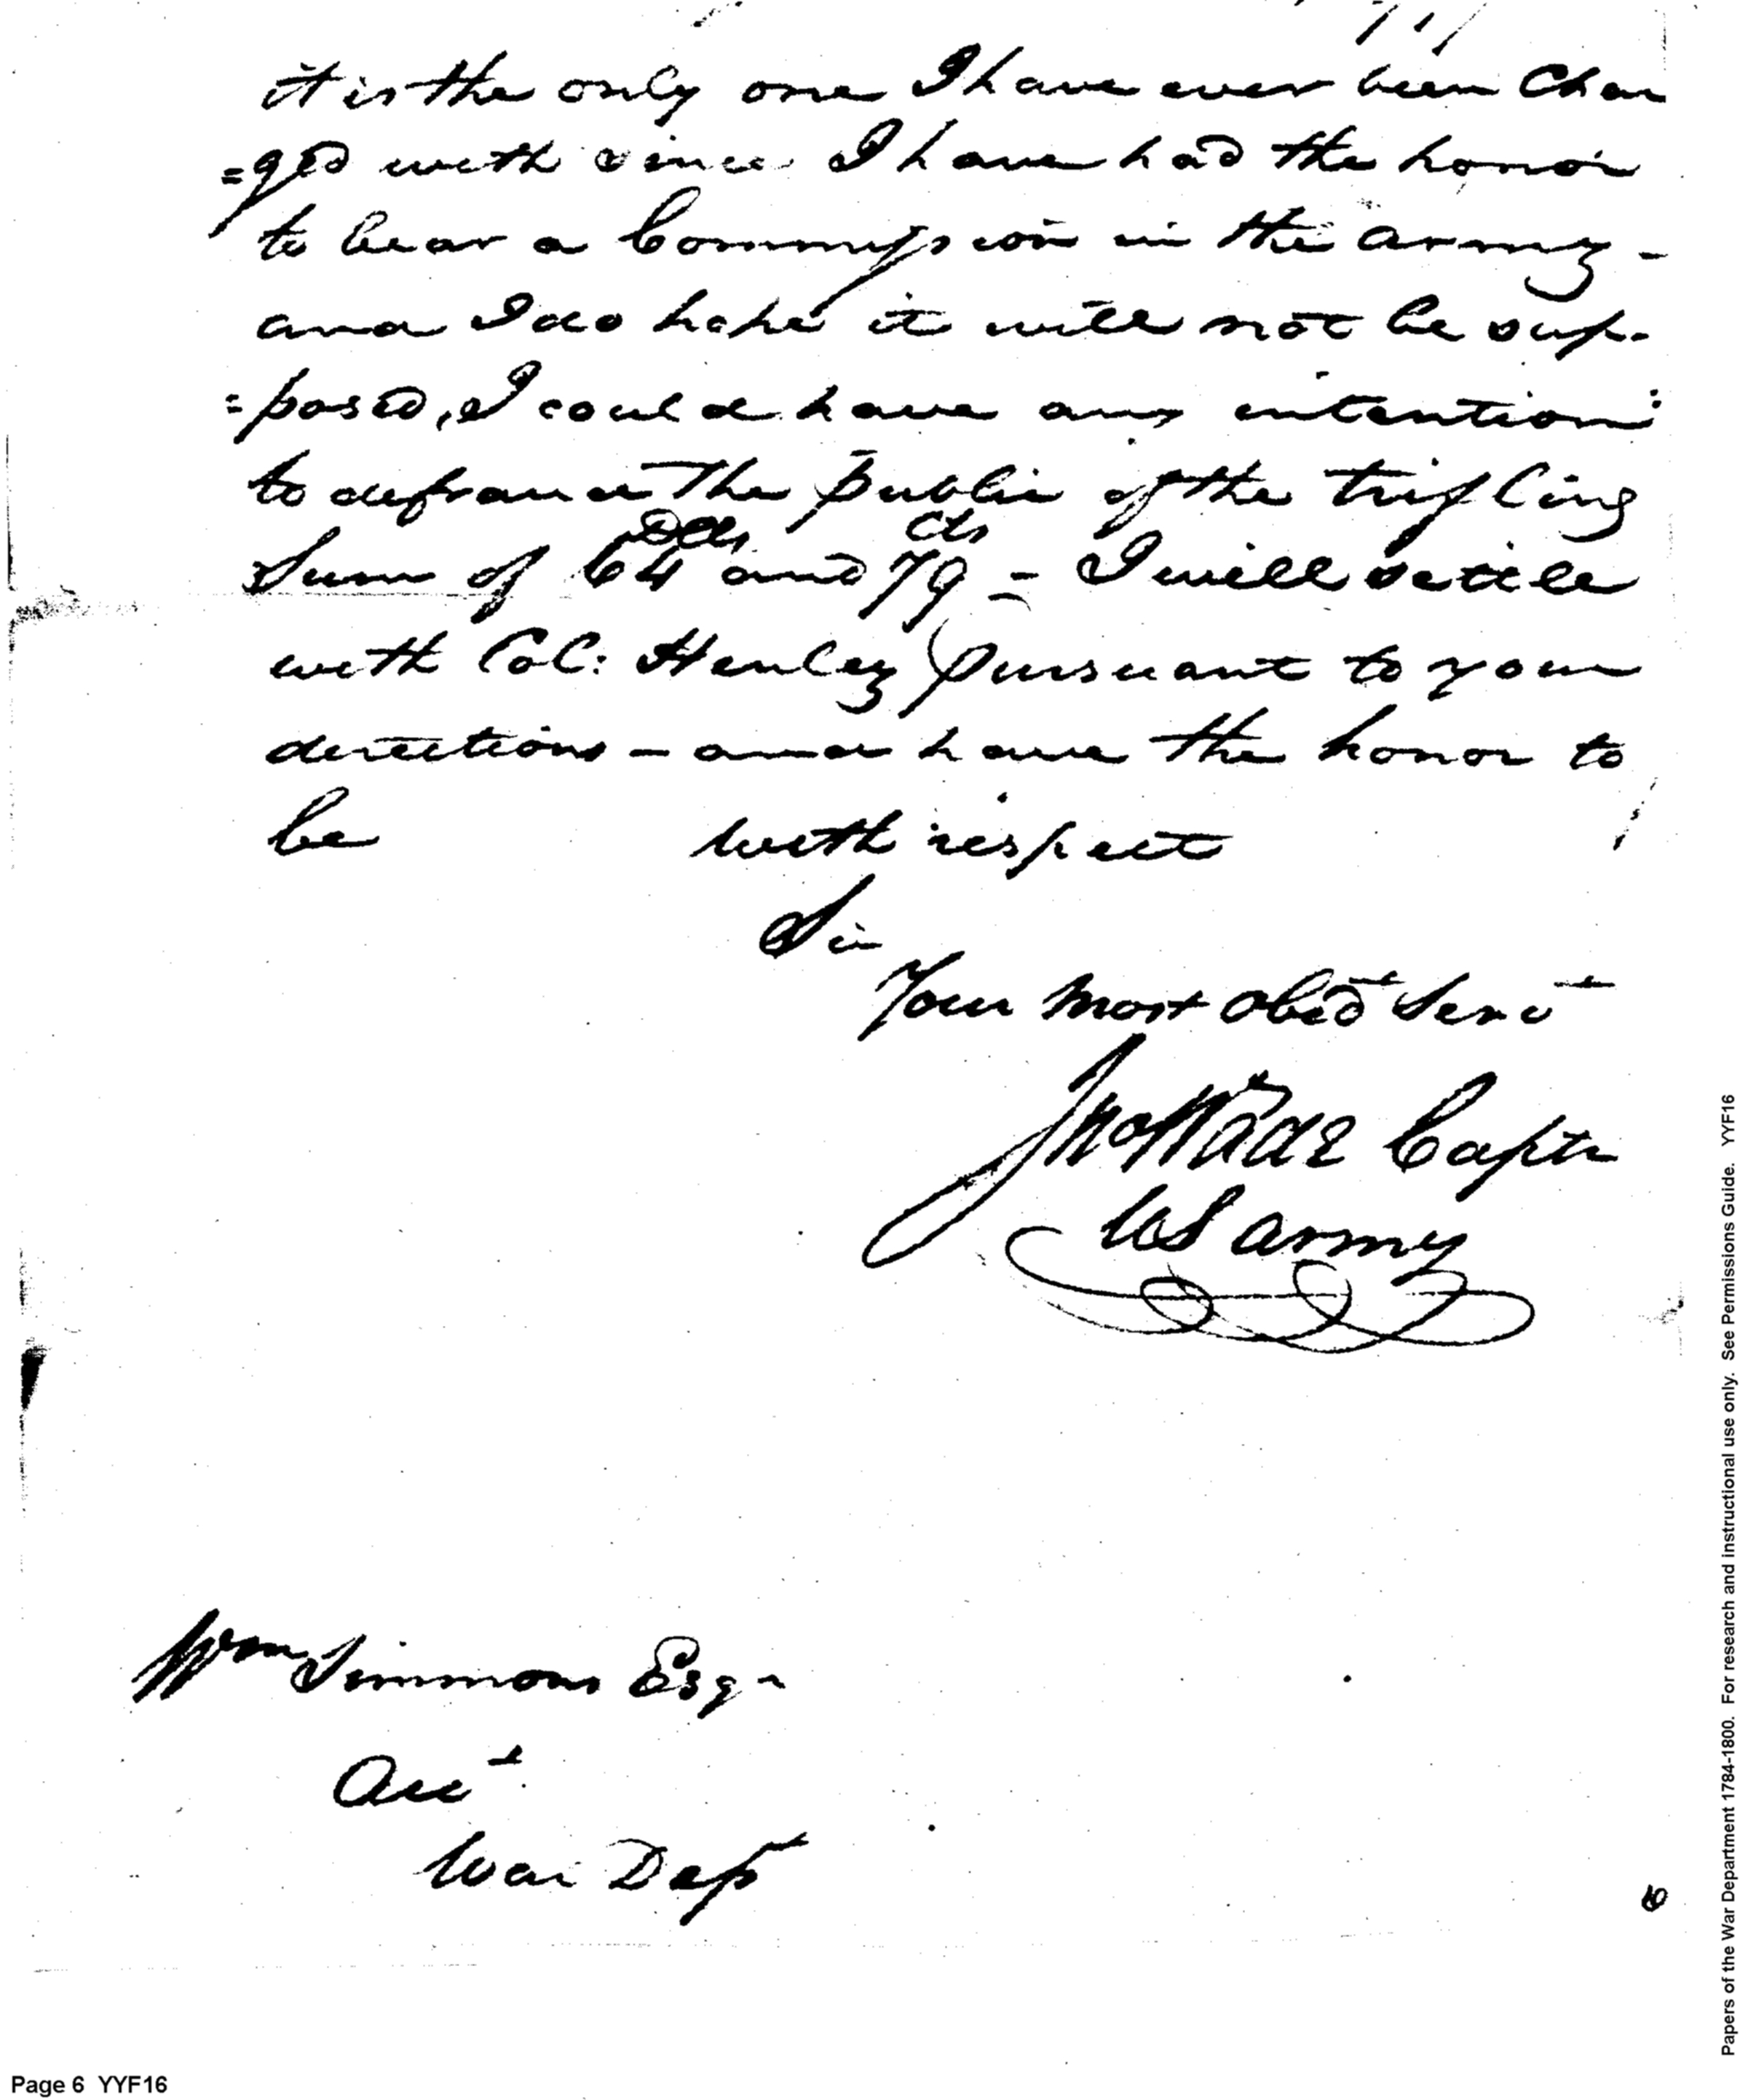 it is the only one I have ever been Char
=ged with since I have had the honor
to bear a Commission in the army -
and I do hope it will not be sup-
=posed, I could have any intention
to defraud the public of the trifling
Sum of 64 Dolls and 79 cts - I will settle
with Col: Henley pursuant to your
directions - and have the honor to
be with respect
Sir
Your most obedt Servt
Jno Wade Captn
US army
Wm Simmons Esqr
Acct
War Dept
6
Page 6 YYF16
Papers of the War Department 1784-1800. For research and instructional use only. See Permissions Guide. YYF16